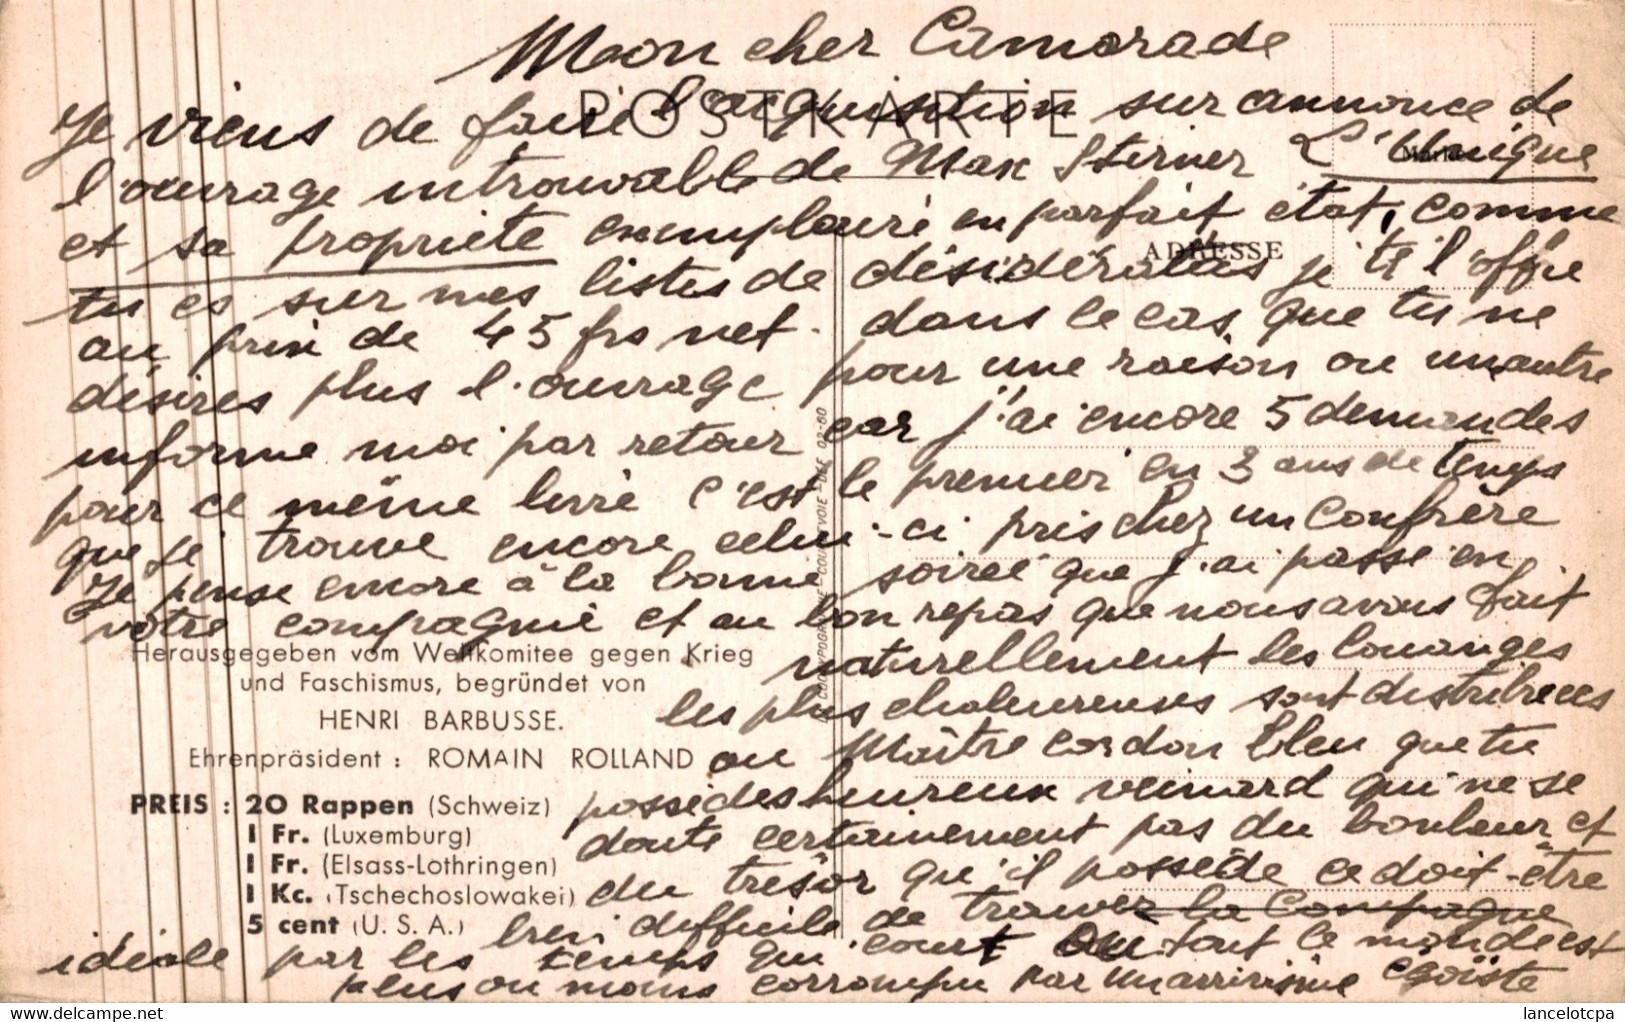 Moon cher Camarade
POSTKARTE
Je viens de faire l'acquisition sur annonce de
l'ouvrage introuvable de Max Sterner L'Unique
et sa propriété exemplaire en parfait état, comme
ADRESSE
tu es sur mes listes de désidératas je te l'offre
au prix de 45 frs net. dans le cas que tu ne
désires plus l'ouvrage pour une raison ou un autre
informe moi par retour car j'ai encore 5 demandes
pour ce même livre c'est le premier en 3 ans de temps
que je trouve encore celui-ci pris chez un confrère
Je pense encore à la bonne soirée que j'ai passé en
votre compagnie et au bon repas que nous avons fait
naturellement les louanges
les plus chaleureuses sont distribuées
au Maître cordon bleu que tu
possèdes heureux veinard qui ne se
doute certainement pas du bonheur et
du trésor qu'il possède ce doit-être
bien difficile de trouver la Compagne
idéale par les temps qui court ou tout le monde est
plus ou moins corrompu par un arrivisme égoïste
Herausgegeben vom Weltkomitee gegen Krieg
und Faschismus, begründet von
HENRI BARBUSSE.
Ehrenpräsident : ROMAIN ROLLAND
PREIS : 20 Rappen (Schweiz)
1 Fr. (Luxemburg)
1 Fr. (Elsass-Lothringen)
1 Kc. (Tschechoslowakei)
5 cent (U. S. A.)
02-60
lancelotcpa